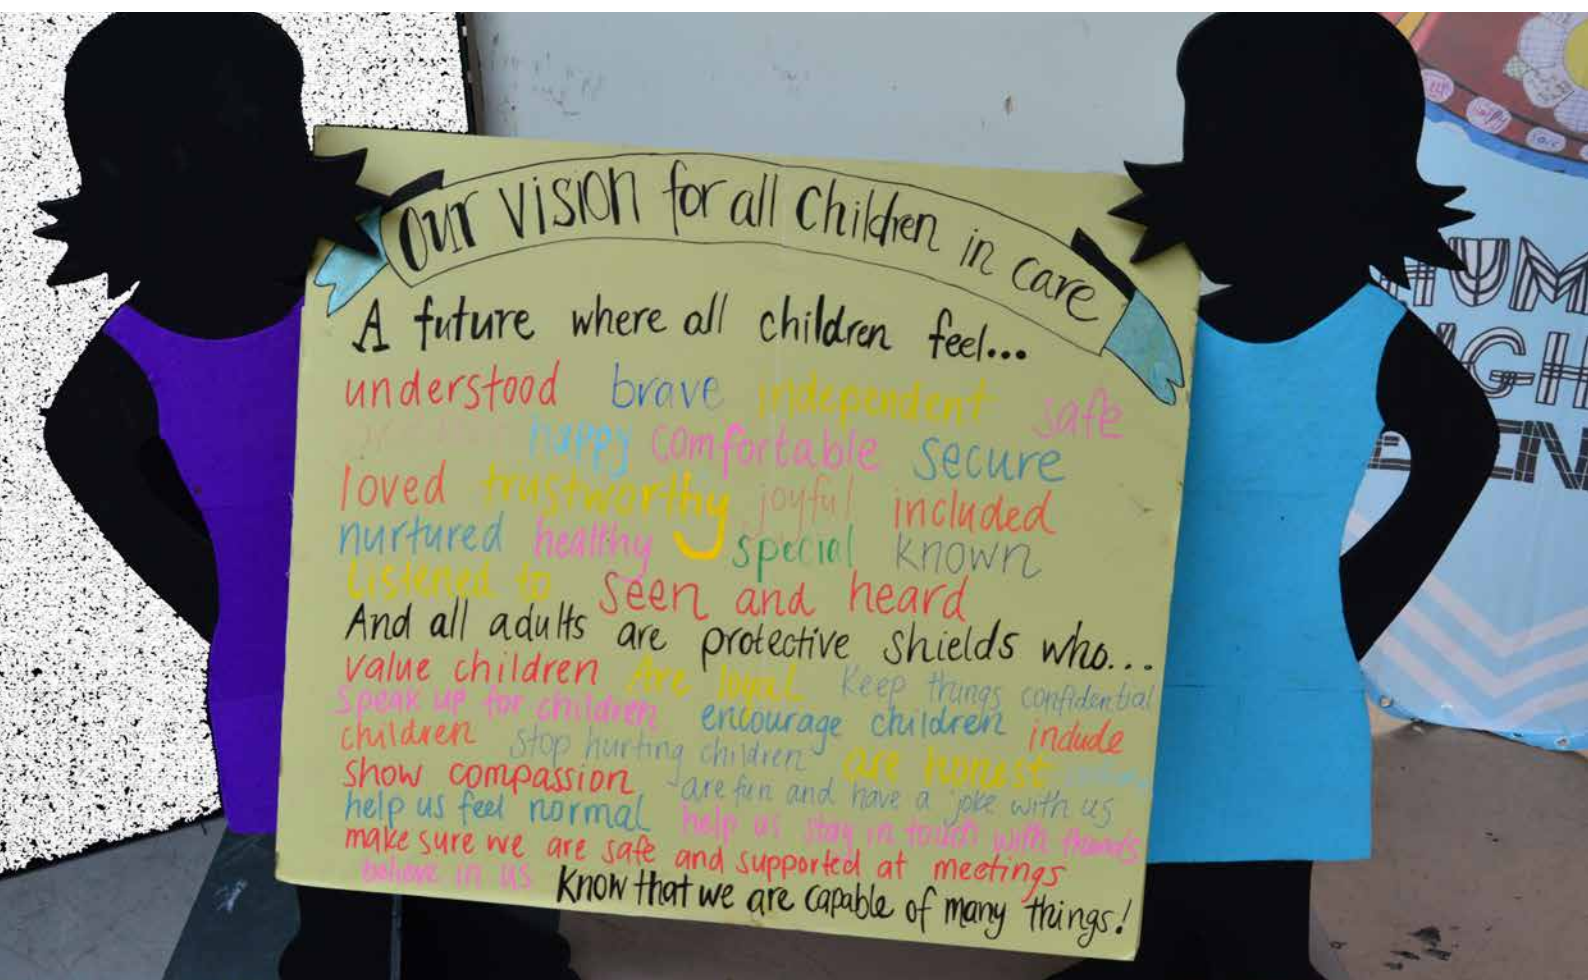 Our vision for all Children in care
A future where all children feel...
understood brave independent safe
happy comfortable secure
loved trustworthy joyful included
nurtured healthy special known
Listened to seen and heard
And all adults are protective shields who...
value children Are loyal Keep things confidential
Speak up for children encourage children include
children stop hurting children are honest
show compassion are fun and have a joke with us
help us feel normal help us stay in touch with friends
make sure we are safe and supported at meetings
believe in us Know that we are capable of many things!
HUM